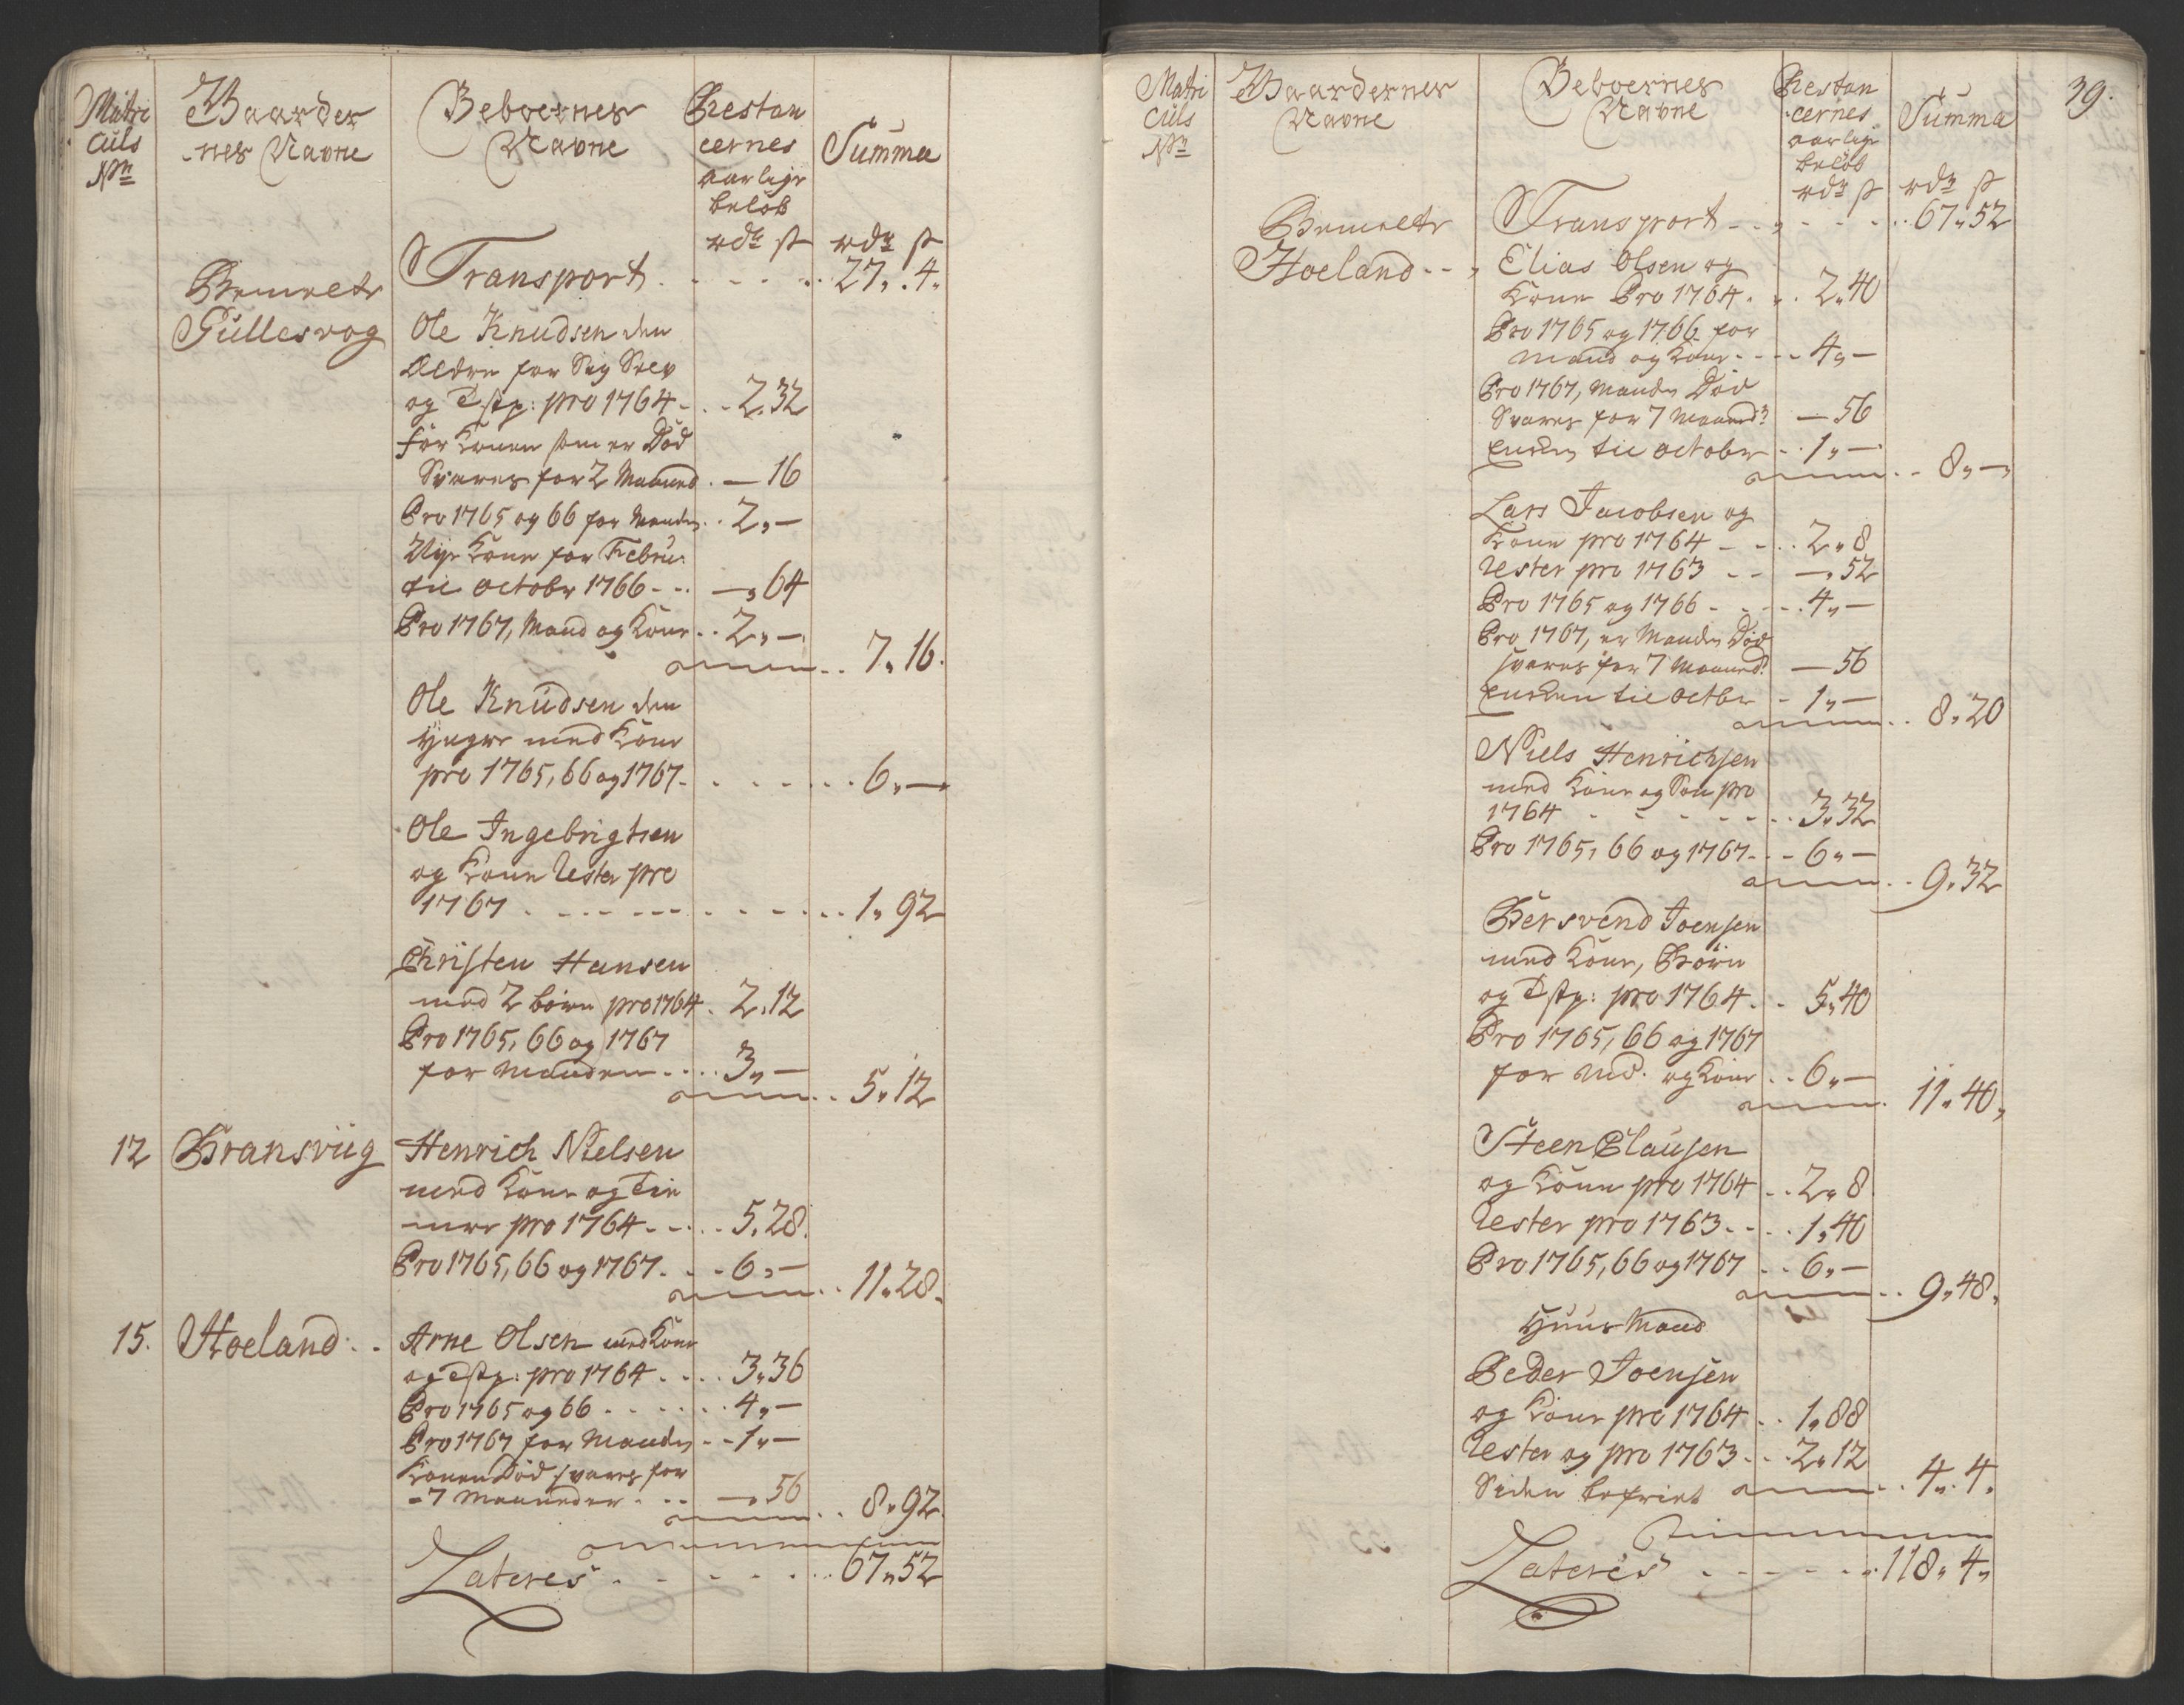 Matri
culs
Nr.
Gaarder
nes Navne
Beboernes
Navne
Restan
cernes
aarlige
beløb
rdr ß
Summa
rdr ß
Transport . . . . . 27,, 4,,
Bemelte
Gullesvog
Ole Knudsen den
Ældre for Sig Selv
og Tstp: pro 1764 - . . 2,, 32
før Konen som er Død
Svares for 2 Maaned . — 16
Pro 1765 og 66 for Manden . . 2,, —
Nye Kone for Febru:
til Octobr 1766 - . . —,, 64
Pro 1767, Mand og Kone . . 2,, —
7,, 16.
Ole Knudsen den
Yngre med Kone
pro 1765, 66 og 1767 - . . . . . 6,, —
Ole Ingebrigtsen
og Kone Rester pro
1767 . . . . . . 1,, 92
Christen Hansen
med 2 børn pro 1764 . 2,, 12
Pro 1765, 66 og 1767
for Manden . . . . 3,, —
5,, 12
12 Bransviig Henrich Nielsen
med Kone og Tie
nere pro 1764 - . . . 5,, 28.
Pro 1765, 66 og 1767 . . . 6,, —
11,, 28.
15. Hoeland . . Arne Olsen med Kone
og Tstp: pro 1764 . . . . 3,, 36
Pro 1765 og 66 . . . . . . 4,, —
Pro 1767 for Manden . . 1,, —
Konen Død svares for
7 Maaneder . . . —,, 56
8,, 92
Lateres . . . . . 67,, 52
39.
Matri
culs
Nr.
Gaardernes
Navne
Beboernes
Navne
Restan
cernes
aarlige
beløb
rdr ß
Summa
rdr ß
Transport . . . . . . 67,, 52
Bemelte
Hoeland - - ,,
Elias Olsen og
Kone Pro 1764 . . . 2,, 40
Pro 1765 og 1766 for
Mand og Kone . . . . 4,, —
Pro 1767, Manden Død
Svares for 7 Maaned: — 56
Enken til October . . 1,, —
8,, —,,
Lars Jacobsen og
Kone pro 1764 - . . . 2,, 8
Rester pro 1763 - - —,, 52
Pro 1765 og 1766 . . . . 4,, —
Pro 1767, er Manden Død
svares for 7 Maaned: — 56
Enken til Octbr - 1,, —
8,, 20
Niels Henrichsen
med Kone og Søn pro
1764 . . . . . . . 3,, 32
Pro 1765, 66 og 1767 . . . 6,, —
9,, 32
Bersvend Joensen
med Kone, Børn
og Tstp: pro 1764 . . 5,, 40
Pro 1765, 66 og 1767
for Md. og Kone . . 6,, —
11,, 40,,
Steen Clausen
og Kone pro 1764 . . 2,, 8
Rester pro 1763 . . . . 1,, 40
Pro 1765, 66 og 1767 . . 6,, —
9,, 48,,
Huus Mand
Peder Joensen
og Kone pro 1764 . . 1,, 88
Rester og pro 1763 . . . 2,, 12
Siden befriet
4,, 4,,
Lateres . . . . . . 118,, 4,,